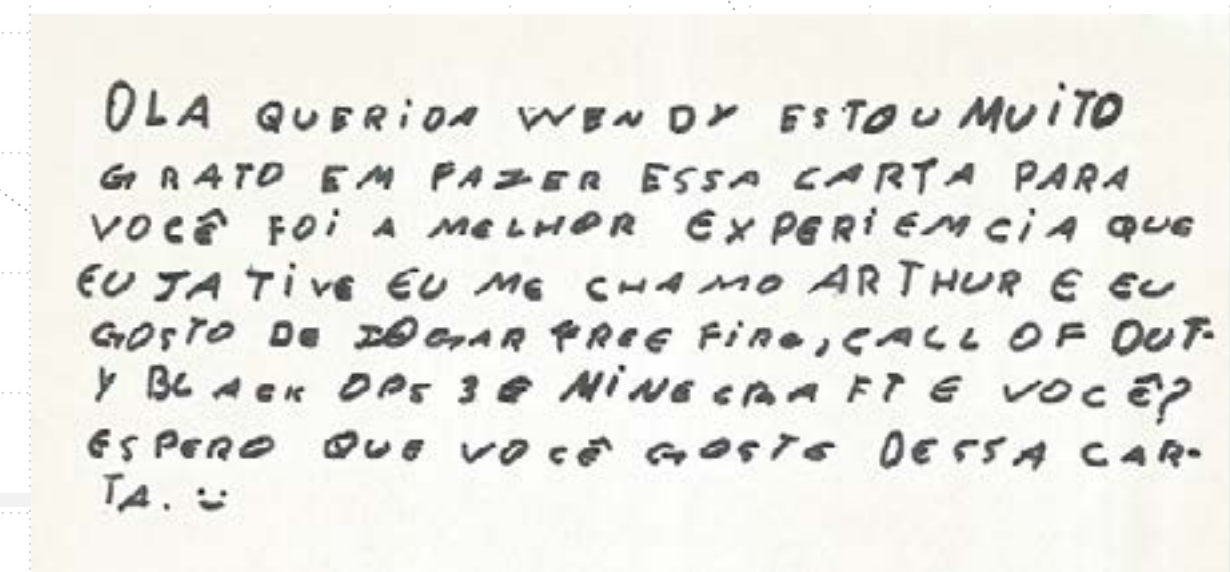 OLA QUERiDA WENDY ESTOU MUiTO
GRATO EM FAZER ESSA CARTA PARA
VOCÊ FOi A MELHOR EXPERiEMCiA QUE
EU JA TiVE EU ME CHAMO ARTHUR E EU
GOSTO DE JOGAR FREE FiRE, CALL OF DUT-
Y BLACK OPS 3 E MiNECRAFT E VOCÊ?
ESPERO QUE VOCÊ GOSTE DESSA CAR-
TA. :)